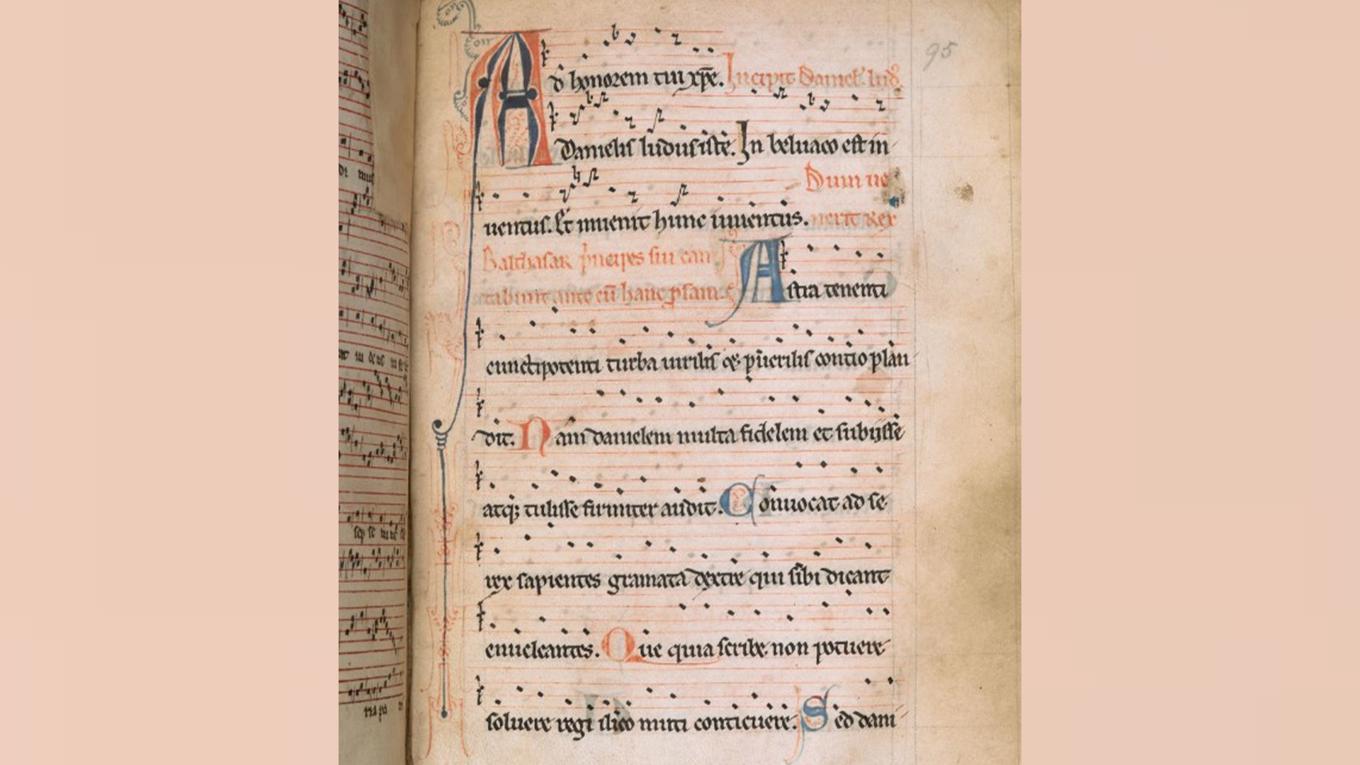 95
Ad honorem tui xp̄e. Incipit Daniel' lud'
Danielis ludus iste. In beluaco est in
Dum ue
uentus. Et inuenit hunc iuuentus. nerit Rex
Balthasar p'ncipes sui can
tabunt ante eū hanc ꝓsam.
Astra tenenti
cunctipotenti turba uirilis et p'uerilis contio plau
dit. Nam danielem multa fidelem et subiisse
atqꝫ tulisse firmiter audit. Conuocat ad se
rex sapientes gramata dextre qui sibi dicant
enucleantes. Que quia scribe non potuere
soluere regi ilico muti conticuere. Sed dani